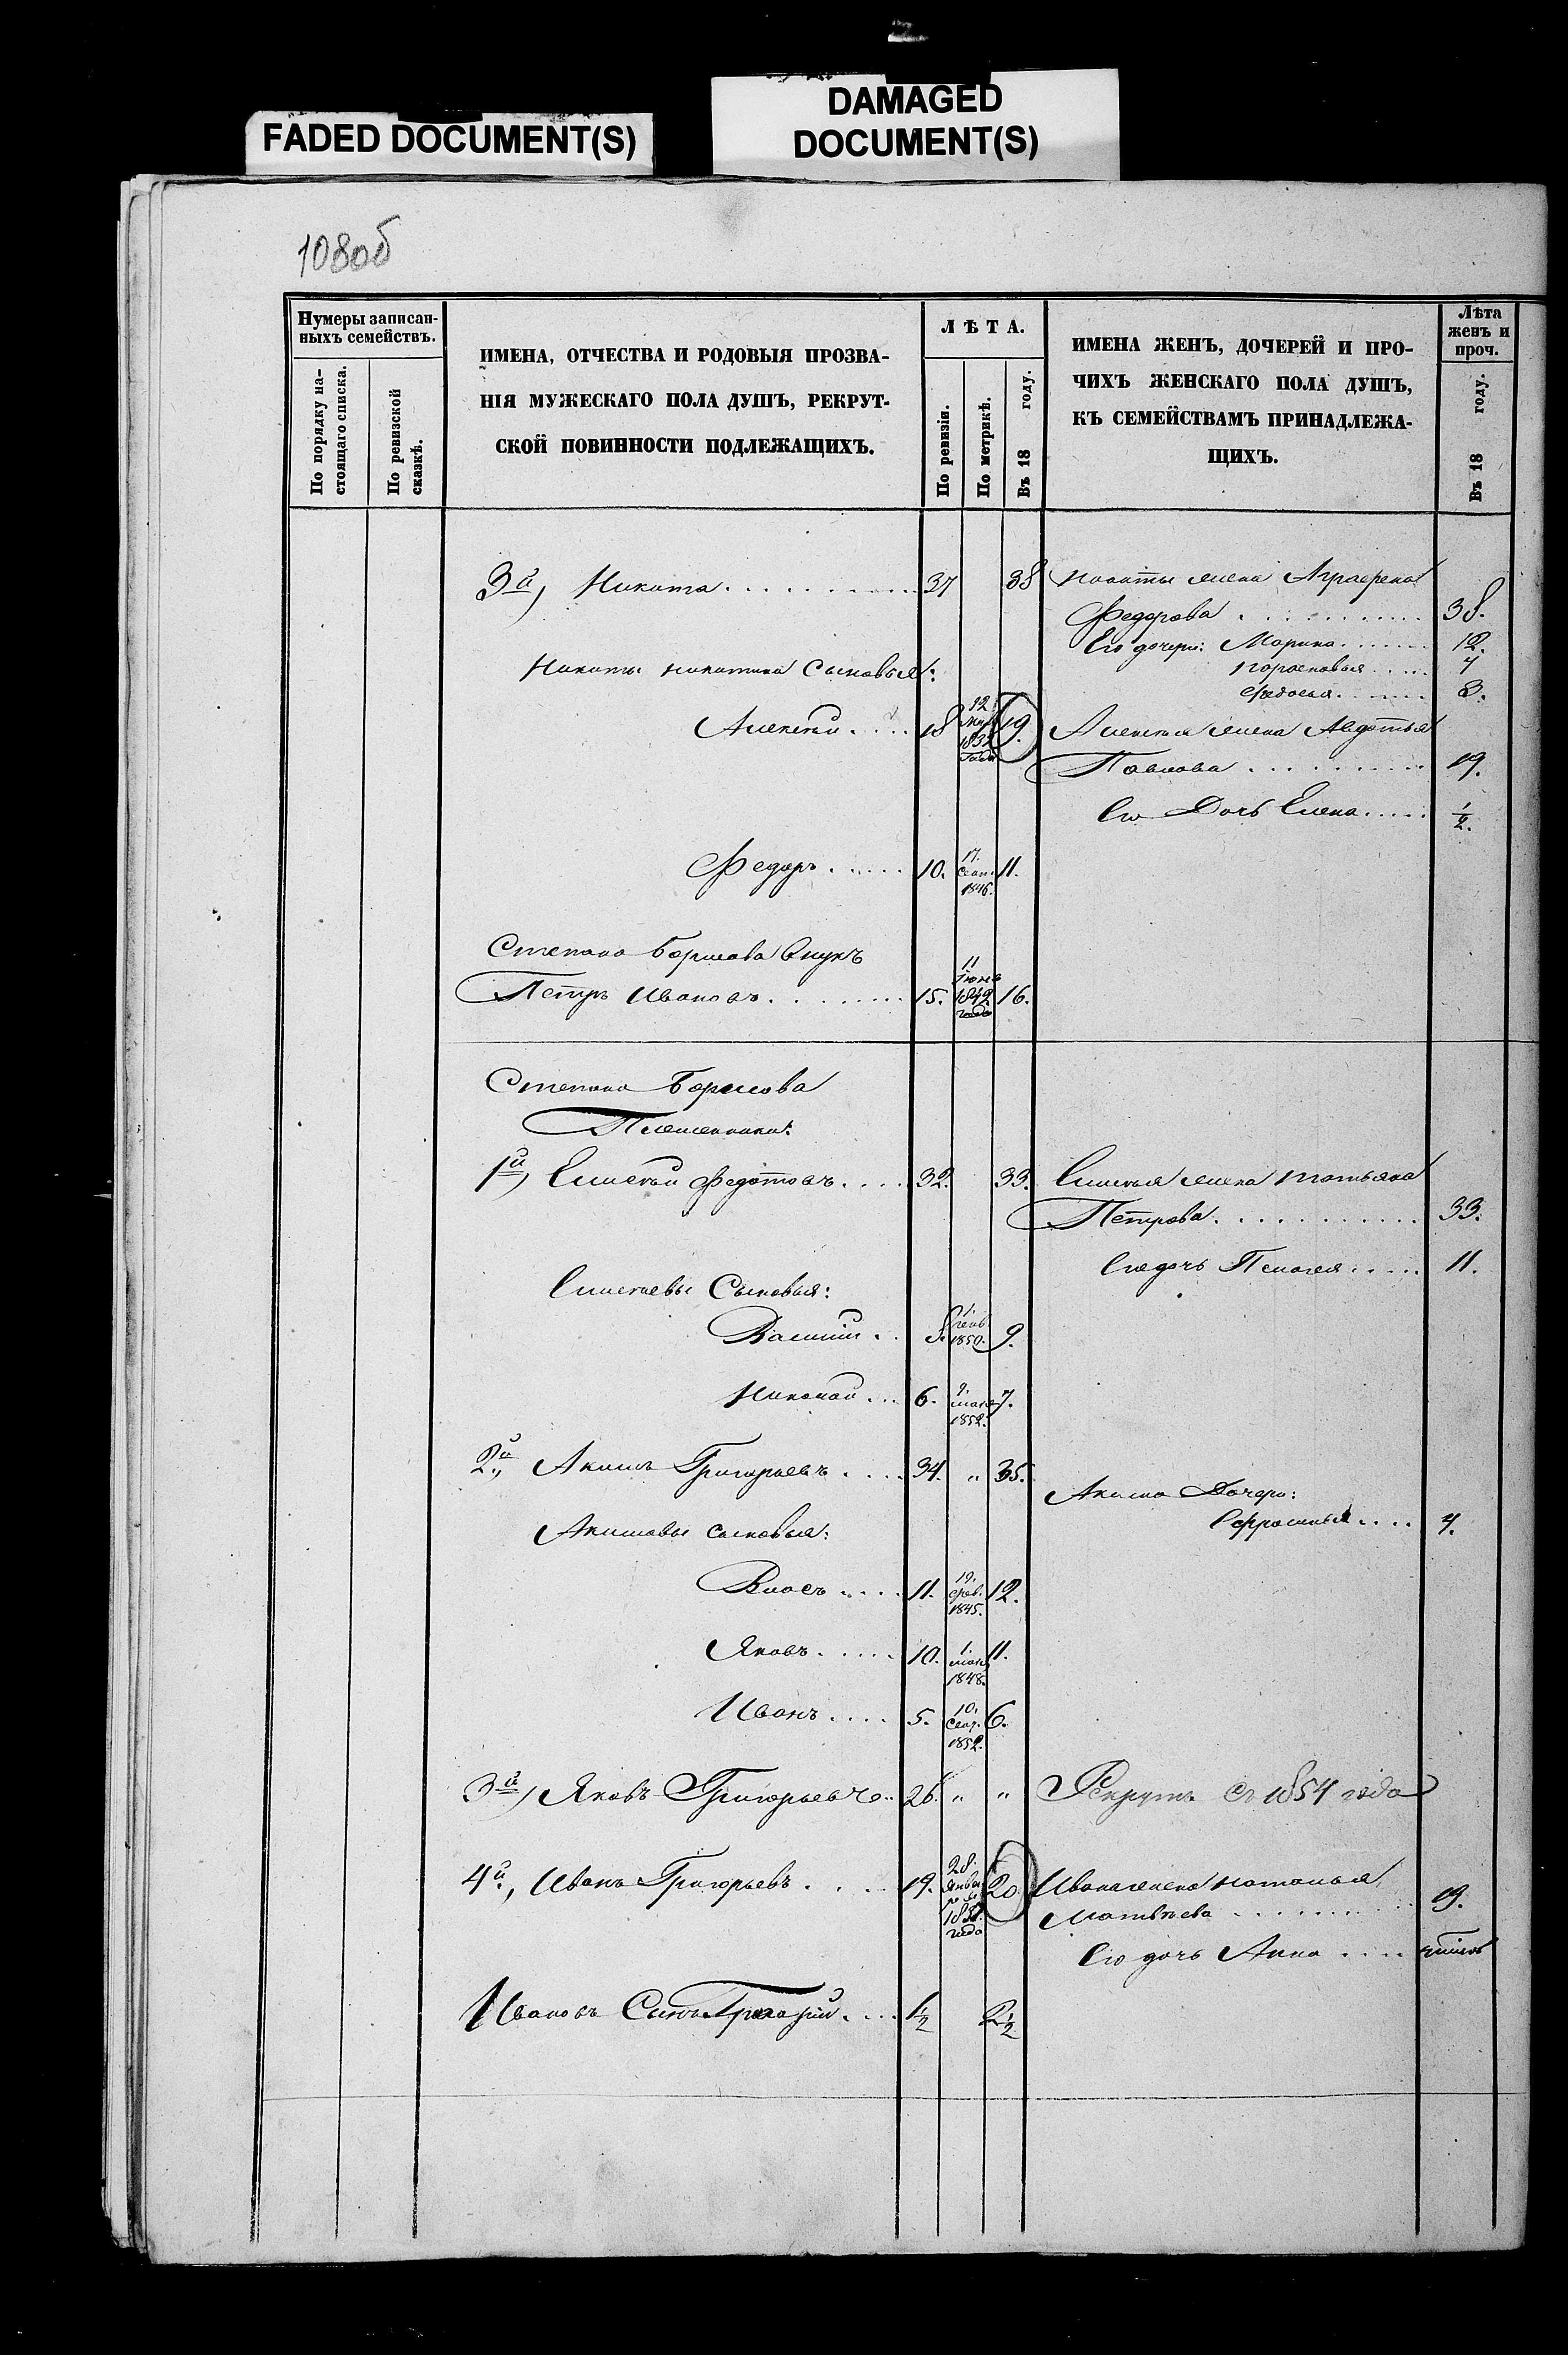 FADED DOCUMENT(S)
DAMAGED
DOCUMENT(S)
108об
Нумеры записан-
ныхъ семействъ.
По порядку на-
стоящаго списка.
По ревизской
сказкѣ.
ИМЕНА, ОТЧЕСТВА И РОДОВЫЯ ПРОЗВА-
НІЯ МУЖЕСКАГО ПОЛА ДУШЪ, РЕКРУТ-
СКОЙ ПОВИННОСТИ ПОДЛЕЖАЩИХЪ.
ЛѢТА.
По ревизіи.
По метрикѣ.
Въ 18 году.
ИМЕНА ЖЕНЪ, ДОЧЕРЕЙ И ПРО-
ЧИХЪ ЖЕНСКАГО ПОЛА ДУШЪ,
КЪ СЕМЕЙСТВАМЪ ПРИНАДЛЕЖА-
ЩИХЪ.
Лѣта
женъ и
проч.
Въ 18 году.
3й, Никита 37 38 Никиты жена Аграфена
Федорова 38.
Его дочери: Марина 12.
Никиты Никитина Сыновья: Парасковья 7
Федосья 3.
Алексей 18 12 1839 года 19. Алексея жена Авдотья
Павлова 19.
Его Дочь Елена 1/2.
Федоръ 10. 17. Сент. 1846. 11.
Степана Борисова Внукъ
Петръ Ивановъ 15. 11 Іюня года 16.
Степана Борисова
Племянники:
1й, Елисей Федотовъ 32. 33. Елисея жена Татьяна
Петрова 33.
Его дочь Пелагея 11.
Елисеевы Сыновья:
Василій 8. 1. Генв 1850. 9.
Николай 6. 9. мая 1852. 7.
2й, Акимъ Григорьевъ 34. " 35.
Акима Дочери:
Акимовы сыновья: Ефросинья 4.
Власъ 11. 19. фев. 1845. 12.
Яковъ 10. 1. 1848. 11.
Иванъ 5. 10. Сент. 1852. 6.
3й, Яковъ Григорьевъ 26. " " Рекрутъ съ 1854 года
4й, Иванъ Григорьевъ 19. 28. Января года 20 Ивана жена Наталья
Матвѣева 19.
Его дочь Анна
Ивановъ Сынъ 1/2 2 1/2